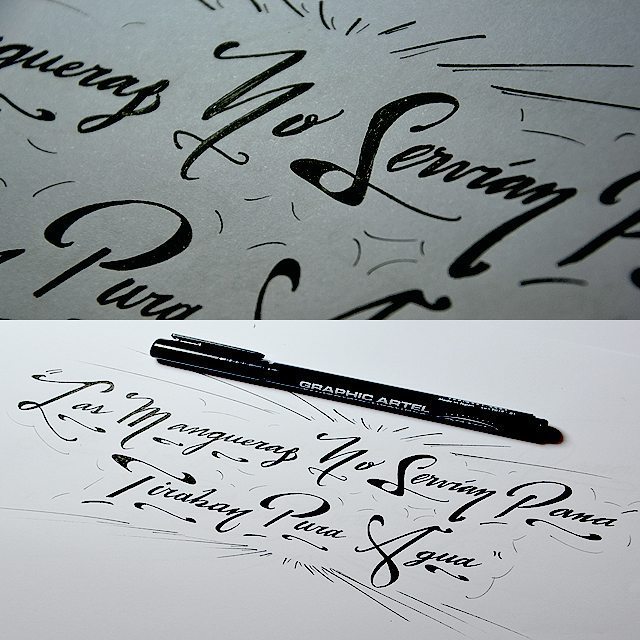 Mangueras No Servían P
Pura A
GRAPHIC ARTEL
"Las Mangueras No Servían Paná
Tiraban Pura Agua"